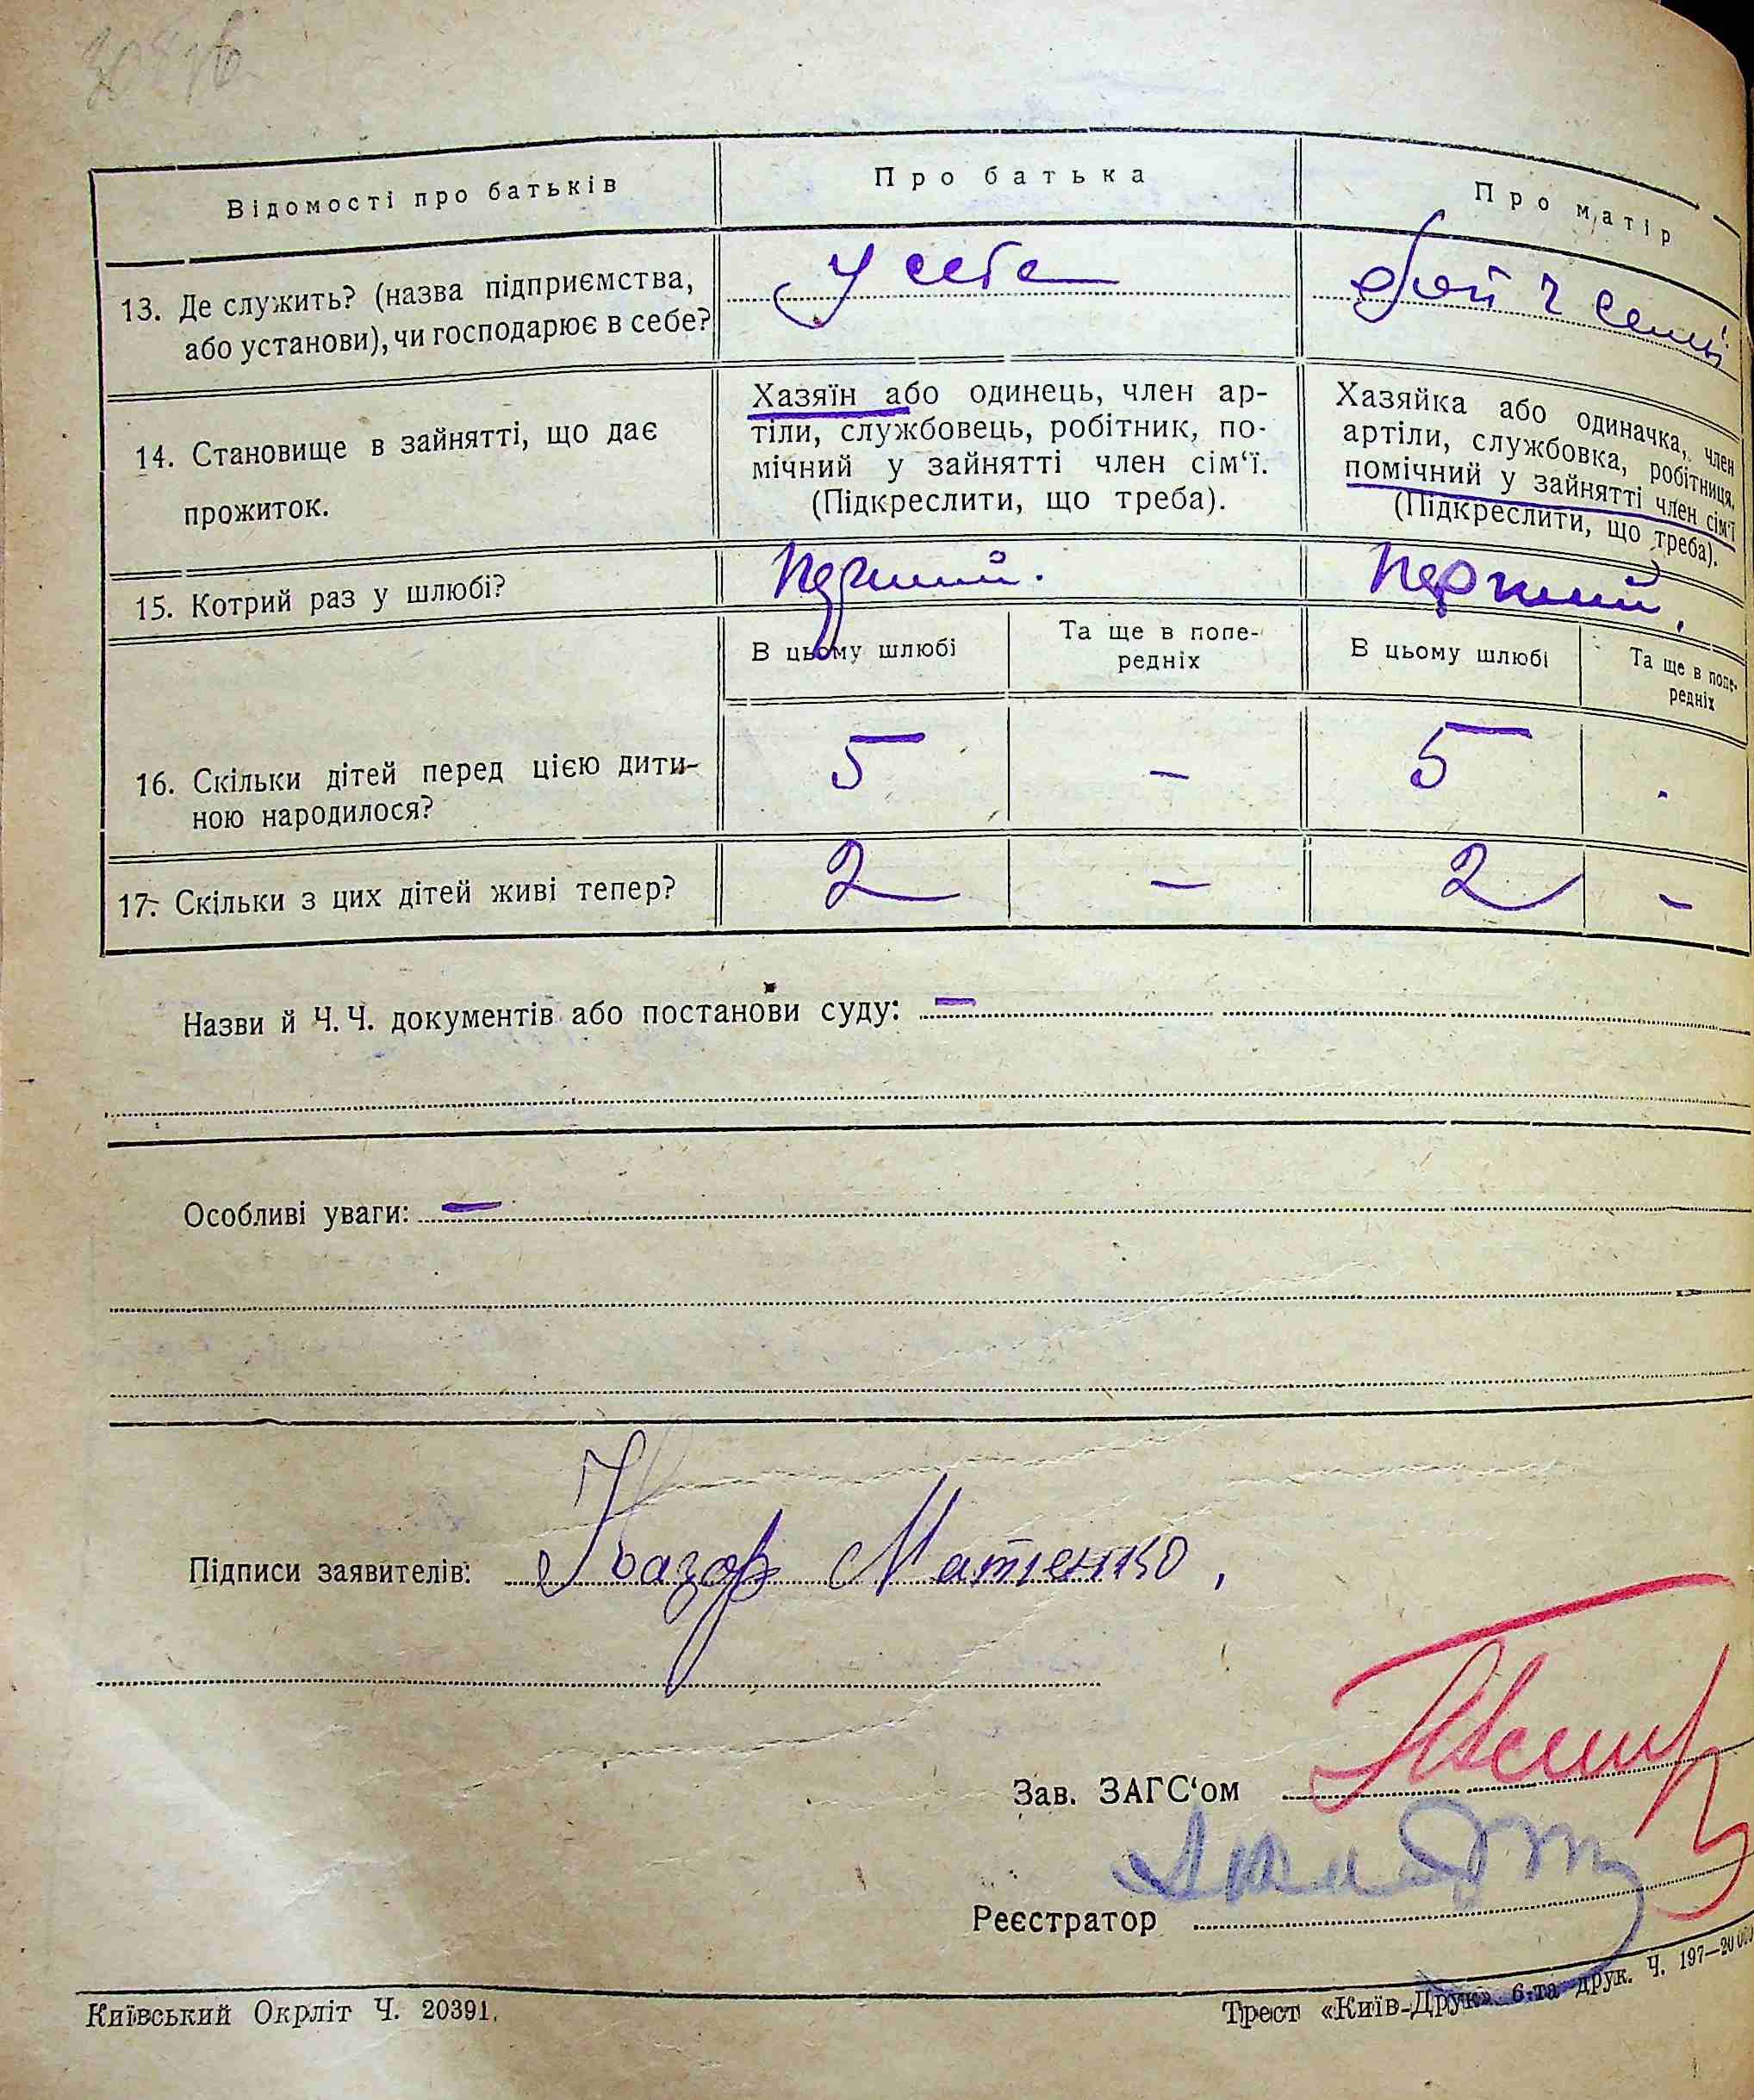 Відомості про батьків
Про батька
Про матір
13. Де служить? (назва підприємства,
або установи), чи господарює в себе?
У себе
14. Становище в зайнятті, що дає
прожиток.
Хазяїн або одинець, член ар-
тіли, службовець, робітник, по-
мічний у зайнятті член сім‘ї.
(Підкреслити, що треба).
Хазяйка або одиначка, член
артіли, службовка, робітниця,
помічний у зайнятті член сім‘ї
(Підкреслити, що треба).
15. Котрий раз у шлюбі?
Перший.
Перший,
В цьому шлюбі
Та ще в попе-
редніх
В цьому шлюбі
Та ще в попе-
редніх
16. Скільки дітей перед цією дити-
ною народилося?
5
–
5
-
17. Скільки з цих дітей живі тепер?
2
–
2
–
Назви й Ч. Ч. документів або постанови суду: –
Особливі уваги: –
Підписи заявителів: Назар Матіенко,
Зав. ЗАГС‘ом
Реєстратор
Київський Окрліт Ч. 20391.
Трест «Київ-Друк» 6-та друк. Ч. 197—20000